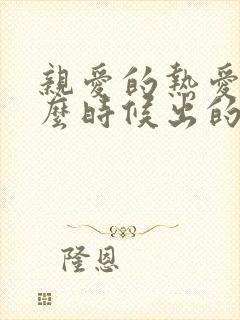 親愛的熱愛
麼時候出的
隆恩